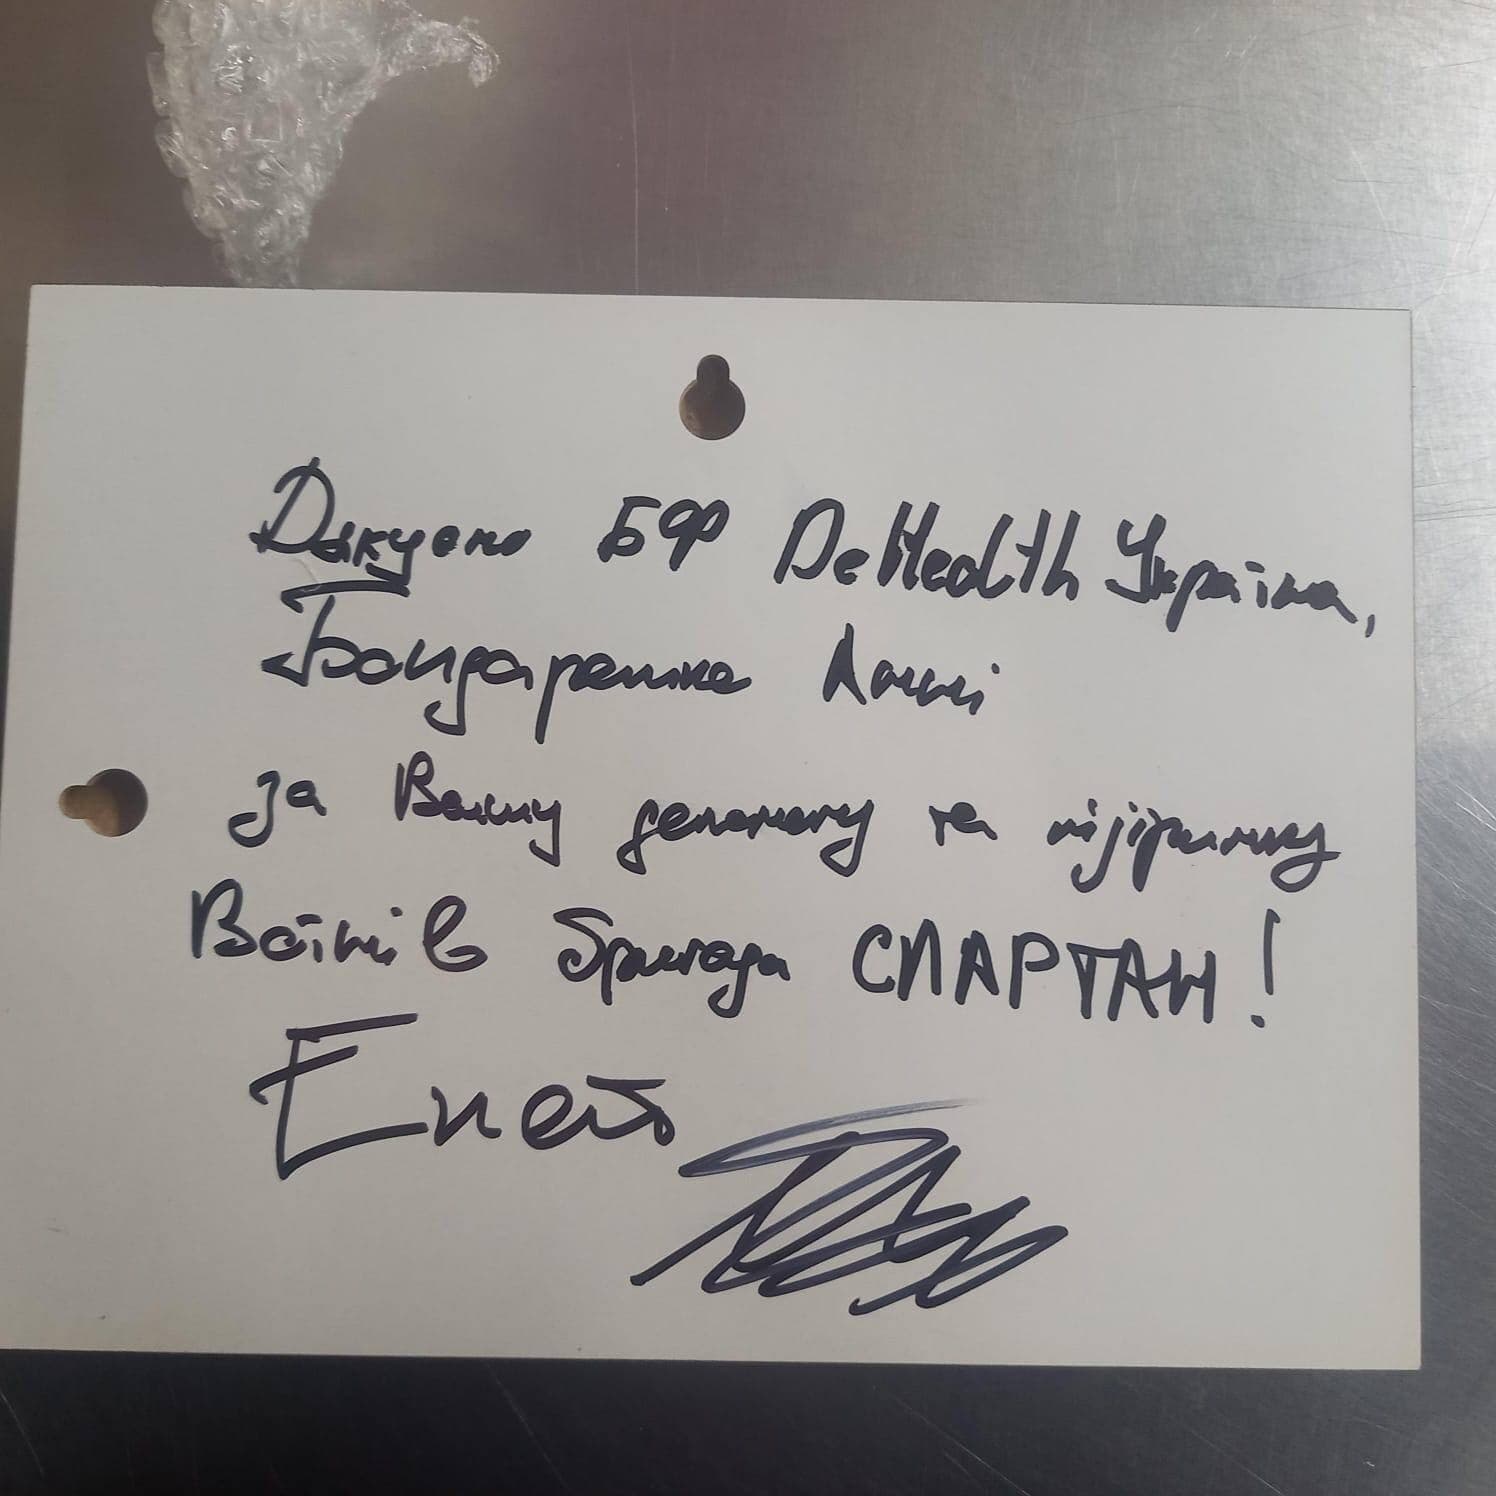 Дякуємо БФ DeHealth Україна,
Бондаренко Анні
за Вашу допомогу та підтримку
Воїнів бригади СПАРТАН!
Еней